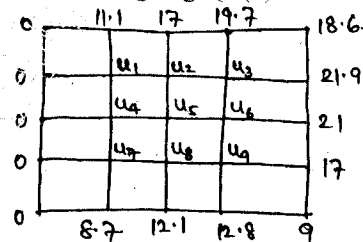 0 11.1 17 19.7 18.6
0 u1 u2 u3 21.9
0 u4 u5 u6 21
0 u7 u8 u9 17
0 8.7 12.1 12.8 9